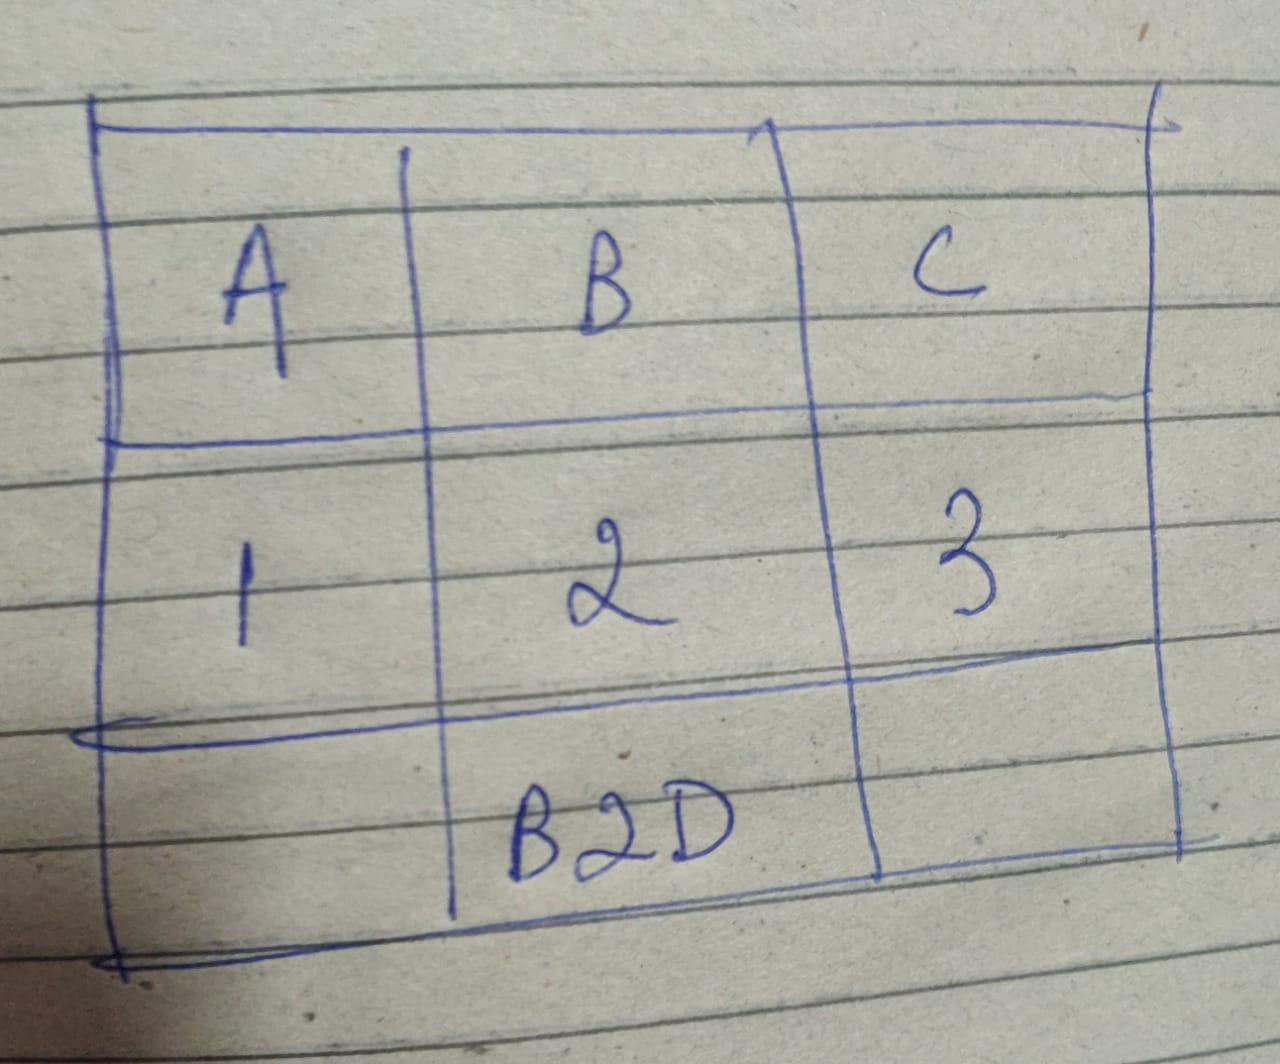 A B C
1 2 3
B2D